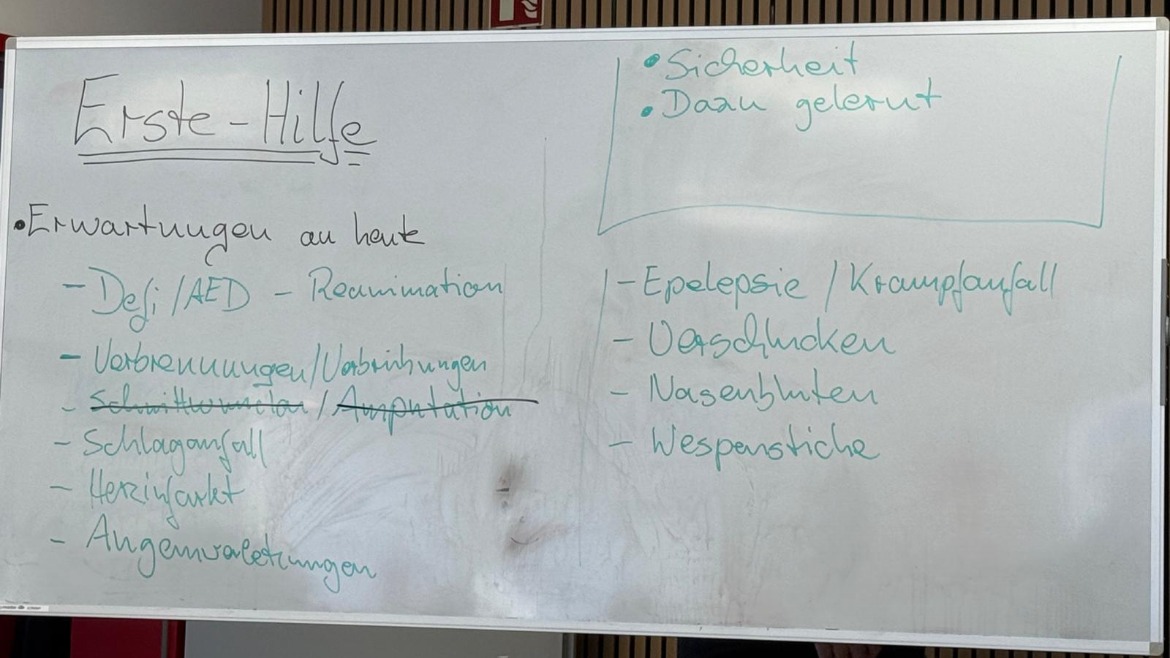 Erste-Hilfe
• Erwartungen an heute
- Defi/AED - Reanimation
- Verbrennungen/Verbrühungen
- Schnittwunden / Amputation
- Schlaganfall
- Herzinfarkt
- Augenverletzungen
• Sicherheit
• Dazu gelernt
- Epelepsie / Krampfanfall
- Verschlucken
- Nasenbluten
- Wespenstiche